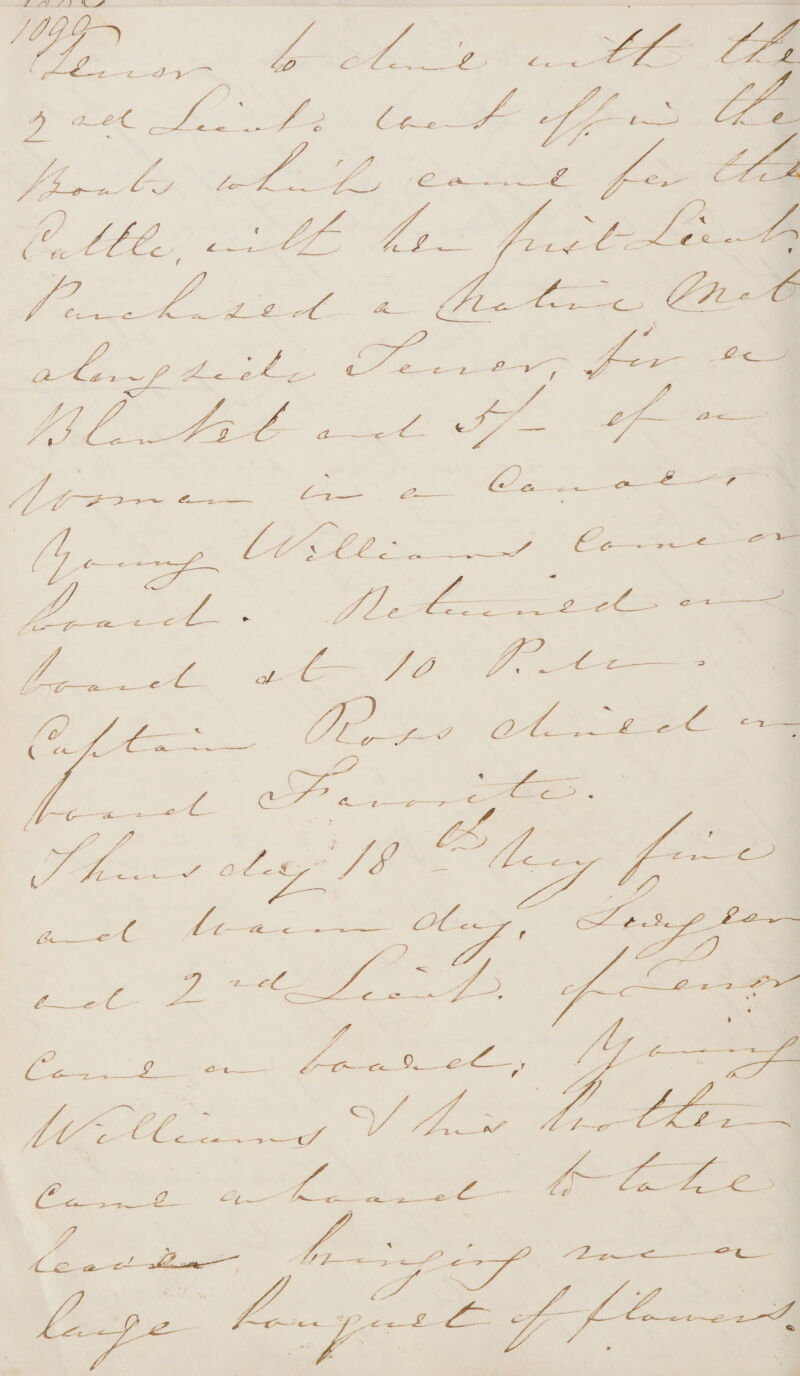 1099
Terror to dine with the
2nd Lieut. Went off in the
Boats which came for the
Cattle, with her first Lieut.
Purchased a Native Mat
alongside Terror, for a
Blanket and 5/- of a
Woman in a Canoe.
Young Williams came on
board. Returned on
board at 10 P.M.
Captain Ross dined on
board Favorite.
Thursday 18th Very fine
and warm day. Surgeon
and 2nd Lieut. of Terror
Came on board, Young
Williams & his brother
came aboard to take
leave bringing me a
large bouquet of flowers.